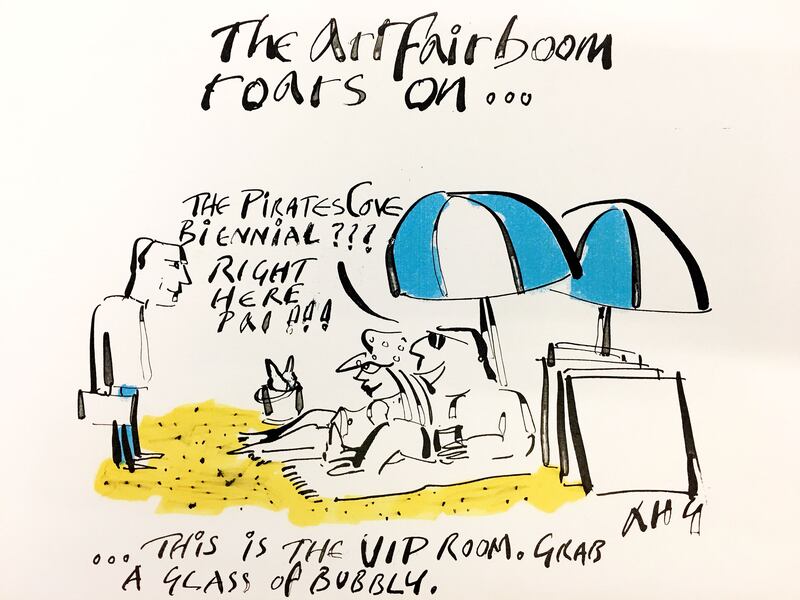 The Art Fair boom
roars on ...
THE PIRATES COVE
BIENNIAL ???
RIGHT
HERE
PAL !!!
... THIS IS THE VIP ROOM. GRAB
A GLASS of BUBBLY.